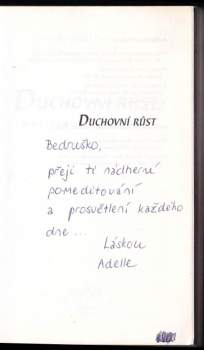 DUCHOVNÍ RŮST
Bedruško,
přeji ti nádherné
pomeditování
a prosvětlení každého
dne ...
Láskou
Adelle